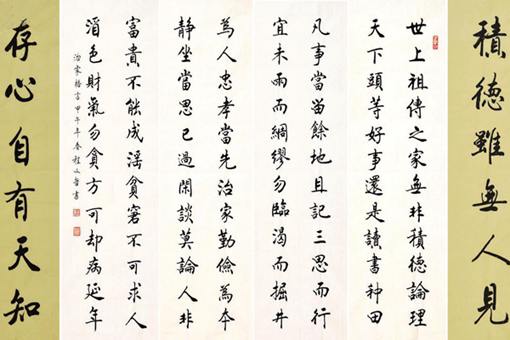 積德雖無人見
世上祖傳之家無非積德論理
天下頭等好事還是讀書種田
凡事當留餘地且記三思而行
宜未雨而綢繆勿臨渴而掘井
為人忠孝當先治家勤儉為本
靜坐當思己過閑談莫論人非
富貴不能成淫貧窘不可求人
酒色財氣勿貪方可却病延年
治家格言甲午年春程文書
存心自有天知